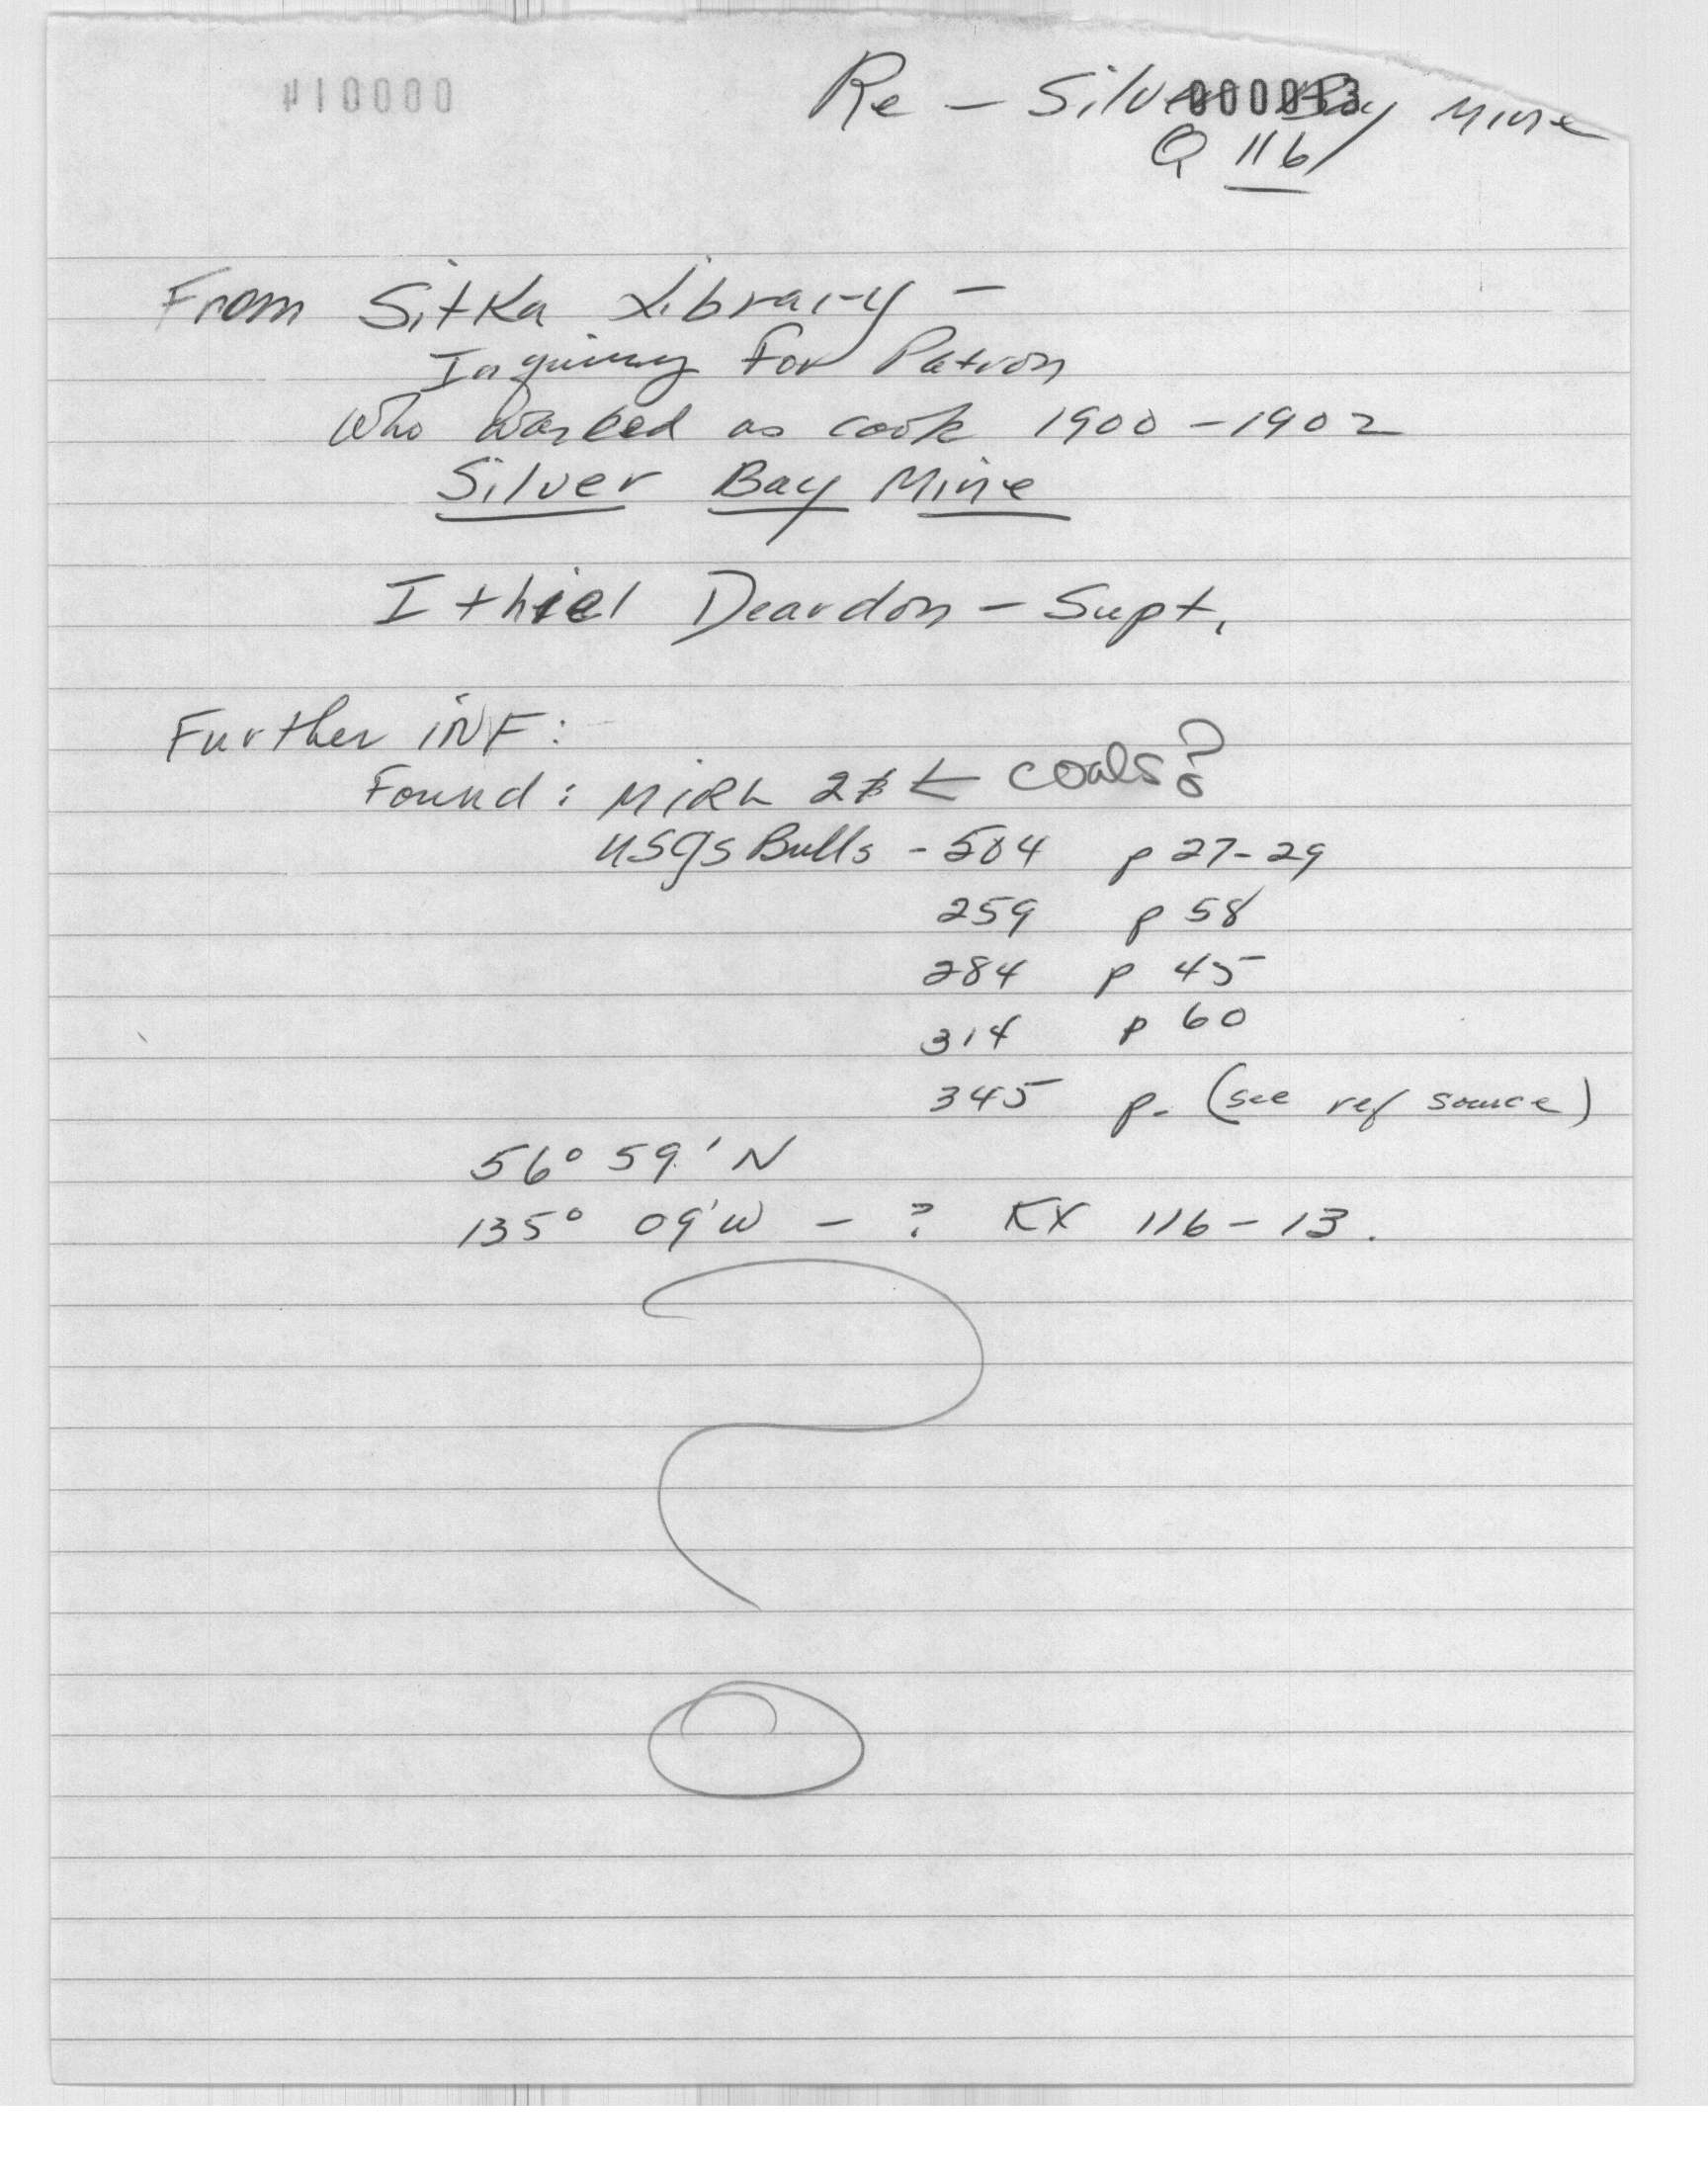 Re - Silver Bay Mine
000013
Q 116
From Sitka Library -
Inquiry for Patron
who worked as cook 1900 - 1902
Silver Bay Mine
Ithiel Deardon - Supt.
Further INF:
Found: MIRL ← coals?
USGS Bulls - 504 p 27-29
259 p 58
284 p 45
314 p 60
345 p. (see ref source)
56° 59' N
135° 09' W - ? KX 116-13.
?